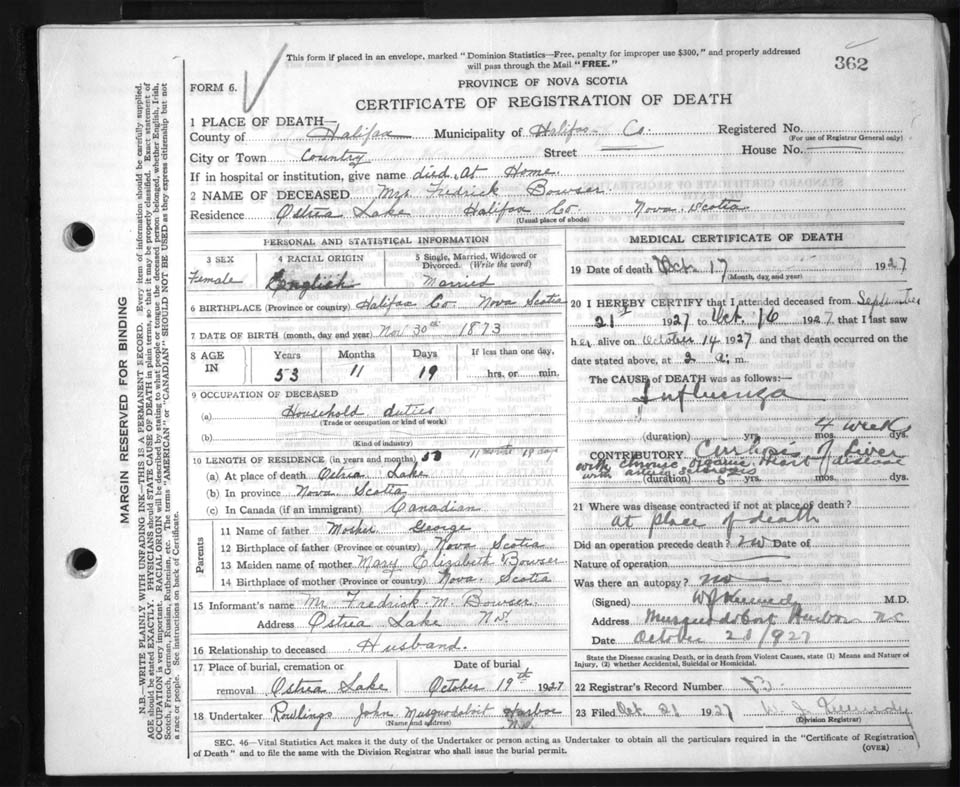 This form if placed in an envelope, marked "Dominion Statistics—Free, penalty for improper use $300," and properly addressed
will pass through the Mail "FREE."
362
FORM 6.
PROVINCE OF NOVA SCOTIA
CERTIFICATE OF REGISTRATION OF DEATH
1 PLACE OF DEATH—
County of Halifax Municipality of Halifax Co. Registered No.
(For use of Registrar General only)
City or Town Country Street House No.
If in hospital or institution, give name died At Home
2 NAME OF DECEASED Mrs Fredrick Bowser
Residence Ostrea Lake Halifax Co Nova Scotia
(Usual place of abode)
PERSONAL AND STATISTICAL INFORMATION
3 SEX
Female
4 RACIAL ORIGIN
English
5 Single, Married, Widowed or
Divorced. (Write the word)
Married
6 BIRTHPLACE (Province or country) Halifax Co Nova Scotia
7 DATE OF BIRTH (month, day and year) Nov 30th 1873
8 AGE
IN
Years Months Days If less than one day,
53 11 19 hrs. or min.
9 OCCUPATION OF DECEASED
(a) Household duties
(Trade or occupation or kind of work)
(b)
(Kind of industry)
10 LENGTH OF RESIDENCE (in years and months) 53 11 months 19 days
(a) At place of death Ostrea Lake
(b) In province Nova Scotia
(c) In Canada (if an immigrant) Canadian
Parents
11 Name of father Mosher George
12 Birthplace of father (Province or country) Nova Scotia
13 Maiden name of mother Mary Elizabeth Bowser
14 Birthplace of mother (Province or country) Nova Scotia
15 Informant's name Mr Fredrick M. Bowser.
Address Ostrea Lake N.S.
16 Relationship to deceased Husband.
17 Place of burial, cremation or
removal Ostrea Lake
Date of burial
October 19th 1927
18 Undertaker Rowlings John Musquodoboit Harbor
N.S.
(Name and address)
MEDICAL CERTIFICATE OF DEATH
19 Date of death Oct. 17 1927
(Month, day and year)
20 I HEREBY CERTIFY that I attended deceased from September
21st 1927 to Oct. 16 1927 that I last saw
her alive on October 14 1927 and that death occurred on the
date stated above, at 2 a. m.
The CAUSE of DEATH was as follows:—
Influenza
4 weeks
(duration) yrs. mos. dys.
CONTRIBUTORY Cirrhosis of Liver
with chronic organic Heart disease
with arterio sclerosis
(duration) yrs. mos. dys.
21 Where was disease contracted if not at place of death?
at place of death
Did an operation precede death? no Date of
Nature of operation
Was there an autopsy? no
(Signed) W J Kennedy M.D.
Address Musquodoboit Harbor
Date October 20/1927
State the Disease causing Death, or in death from Violent Causes, state (1) Means and Nature of
Injury, (2) whether Accidental, Suicidal or Homicidal.
22 Registrar's Record Number
23 Filed Oct. 21 1927 W. J. Kennedy
(Division Registrar)
SEC. 46—Vital Statistics Act makes it the duty of the Undertaker or person acting as Undertaker to obtain all the particulars required in the "Certificate of Registration
of Death" and to file the same with the Division Registrar who shall issue the burial permit.
(OVER)
MARGIN RESERVED FOR BINDING
N.B.—WRITE PLAINLY, WITH UNFADING INK—THIS IS A PERMANENT RECORD. Every item of information should be carefully supplied.
AGE should be stated EXACTLY. PHYSICIANS should STATE CAUSE OF DEATH in plain terms, so that it may be properly classified. Exact statement of
OCCUPATION is very important. RACIAL ORIGIN will be described by stating to what people or tongue the deceased person belonged, whether English, Irish,
Scotch, French, German, Russian, Ruthenian, etc. The terms "AMERICAN" or "CANADIAN" SHOULD NOT BE USED as they express citizenship but not
a race or people. See instructions on back of Certificate.